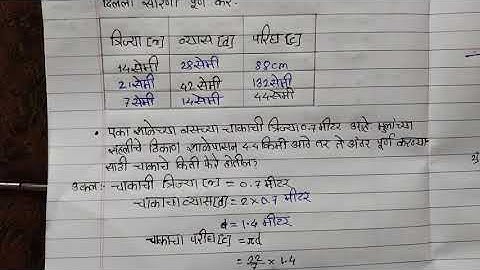 दिलेली सारणी पूर्ण कर.
त्रिज्या [r] व्यास [d] परिघ [c]
14 सेमी 28 सेमी 88 cm
21 सेमी 42 सेमी 132 सेमी
7 सेमी 14 सेमी 44 सेमी
• एका शाळेच्या बसच्या चाकाची त्रिज्या 0.7 मीटर आहे. मुलांच्या
सहलीचे ठिकाण शाळेपासून 44 किमी आहे तर ते अंतर पूर्ण करण्या
साठी चाकाचे किती फेरे होतील?
उकल:- चाकाची त्रिज्या [r] = 0.7 मीटर
चाकाचा व्यास [d] = 2 × 0.7 मीटर
d = 1.4 मीटर
चाकाचा परीघ [c] = πd
= 22/7 × 1.4